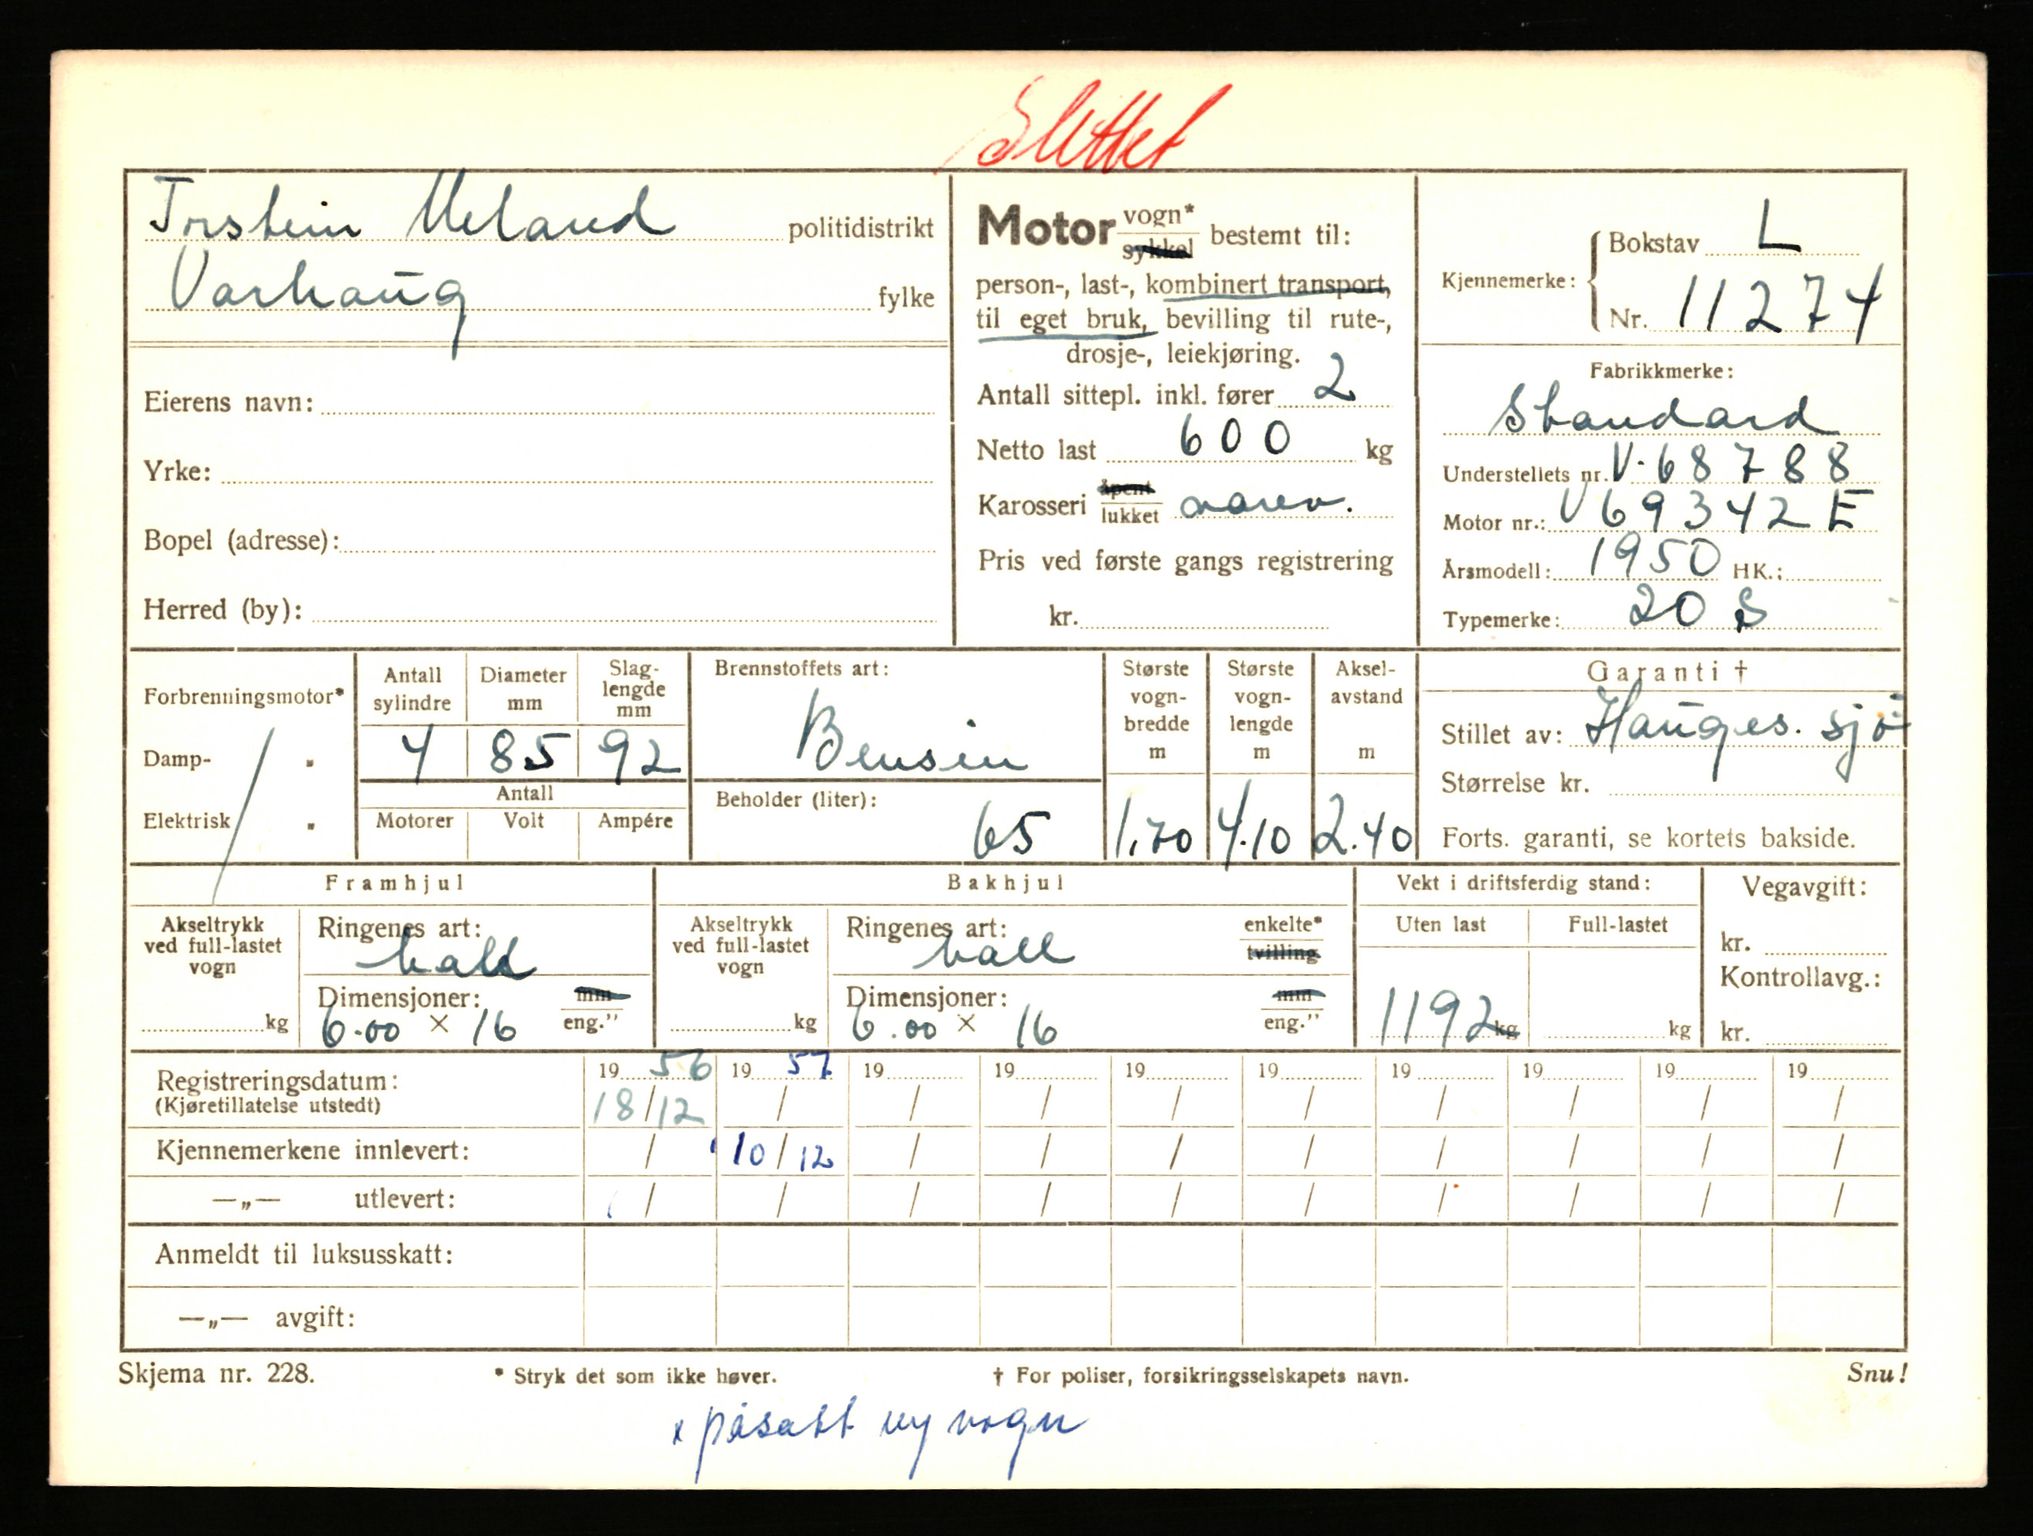 Slettet
Torstein Ueland politidistrikt
Varhaug fylke
Eierens navn:
Yrke:
Bopel (adresse):
Herred (by):
Motor vogn* sykkel bestemt til:
person-, last-, kombinert transport,
til eget bruk, bevilling til rute-,
drosje-, leiekjøring.
Antall sittepl. inkl. fører 2
Netto last 600 kg
Karosseri åpent lukket varev.
Pris ved første gangs registrering
kr.
Kjennemerke: Bokstav L
Nr. 11274
Fabrikkmerke:
Standard
Understellets nr. V.68788
Motor nr.: V69342E
Årsmodell: 1950 HK.:
Typemerke: 20 S
Forbrenningsmotor*
Damp- "
Elektrisk "
Antall sylindre Diameter mm Slaglengde mm
4 85 92
Antall
Motorer Volt Ampére
Brennstoffets art:
Bensin
Beholder (liter):
65
Største vognbredde m Største vognlengde m Akselavstand m
1.70 4.10 2.40
Garanti †
Stillet av: Hauges. sjø
Størrelse kr.
Forts. garanti, se kortets bakside.
Framhjul
Akseltrykk ved full-lastet vogn kg
Ringenes art:
ball
Dimensjoner: mm
6.00 × 16 eng."
Bakhjul
Akseltrykk ved full-lastet vogn kg
Ringenes art: enkelte*
ball tvilling
Dimensjoner: mm
6.00 × 16 eng."
Vekt i driftsferdig stand:
Uten last Full-lastet
1192 kg kg
Vegavgift:
kr.
Kontrollavg.:
kr.
Registreringsdatum: 19 56 19 57 19 19 19 19 19 19 19 19
(Kjøretillatelse utstedt) 18/12 / / / / / / / / /
Kjennemerkene innlevert: / 10/12 / / / / / / / /
—„— utlevert: / / / / / / / / / /
Anmeldt til luksusskatt:
—„— avgift:
Skjema nr. 228. * Stryk det som ikke høver. † For poliser, forsikringsselskapets navn. Snu!
x påsatt ny vogn